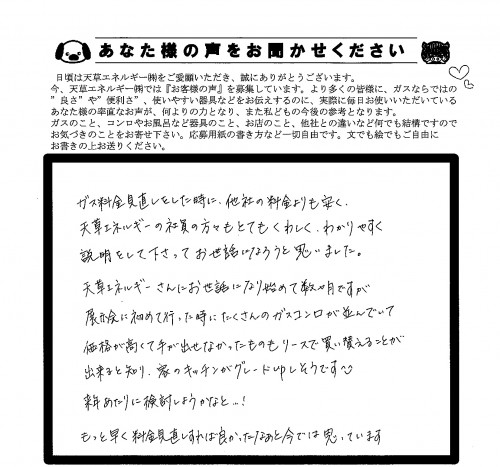 あなた様の声をお聞かせください
日頃は天草エネルギー㈱をご愛願いただき、誠にありがとうございます。
今、天草エネルギー㈱では『お客様の声』を募集しています。より多くの皆様に、ガスならではの
”良さ”や”便利さ”、使いやすい器具などをお伝えするのに、実際に毎日お使いいただいている
あなた様の率直なお声が、何よりの力となり、また私どもの今後の参考となります。
ガスのこと、コンロやお風呂など器具のこと、お店のこと、他社との違いなど何でも結構ですので
お気づきのことをお寄せ下さい。応募用紙の書き方など一切自由です。文でも絵でもご自由に
お書きの上お送りください。
ガス料金見直しをした時に、他社の料金よりも安く、
天草エネルギーの社員の方々もとてもくわしく、わかりやすく
説明をして下さってお世話になろうと思いました。
天草エネルギーさんにお世話になり始めて数ヶ月ですが
展示会に初めて行った時にたくさんのガスコンロが並んでいて
価格が高くて手が出せなかったものもリースで買い替えることが
出来ると知り、家のキッチンがグレードupしそうです
来年あたりに検討しようかなと…!
もっと早く料金見直しすれば良かったなぁと今では思っています